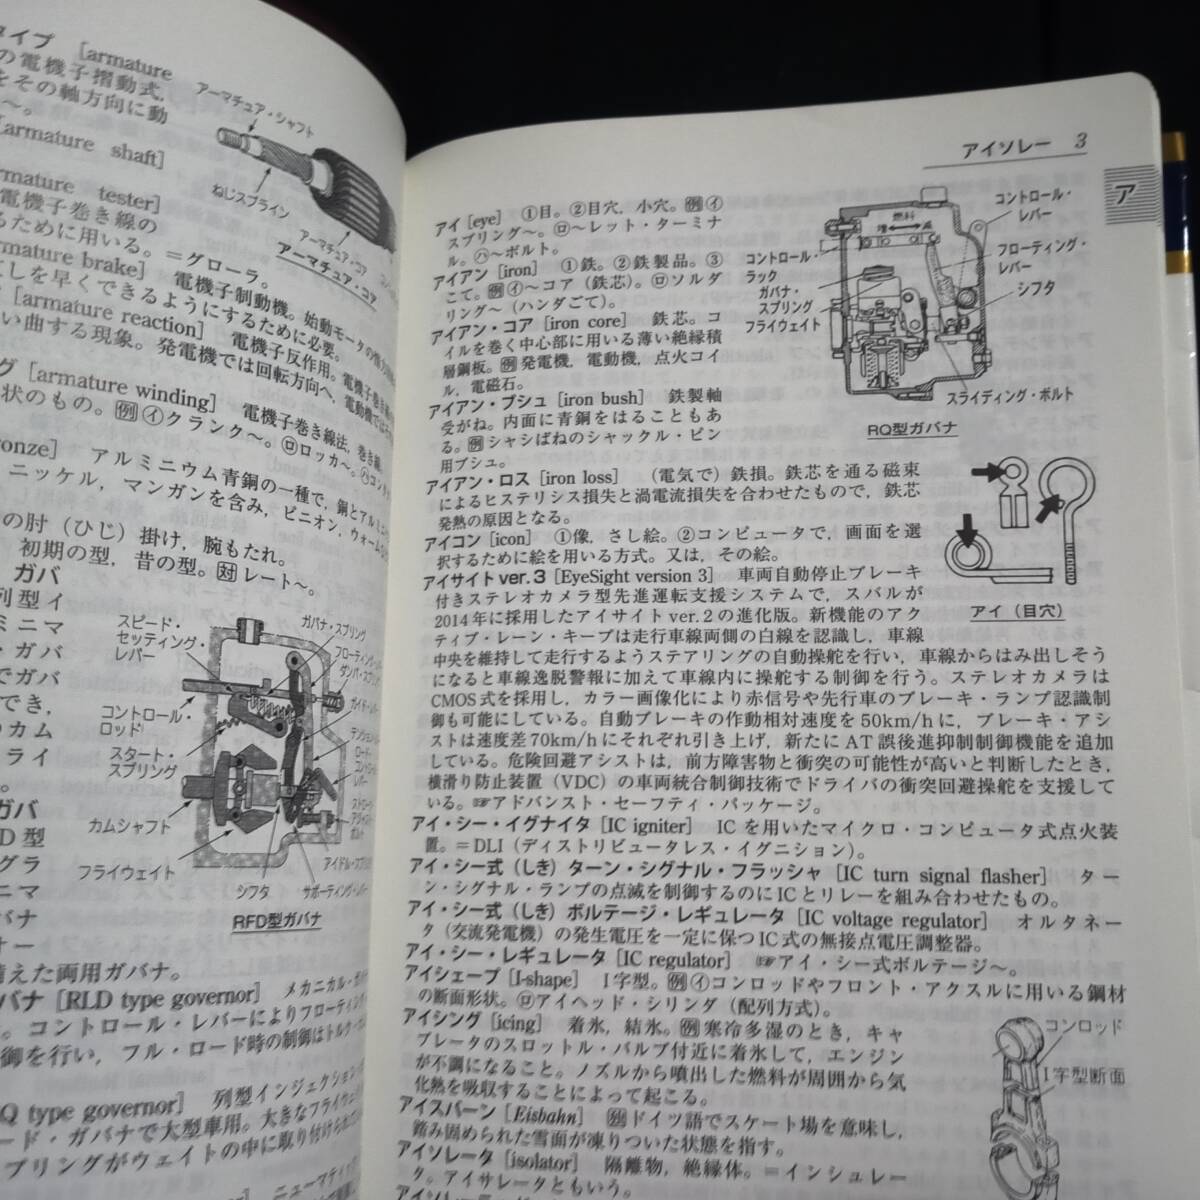 タイプ [armature
の電機子摺動式,
をその軸方向に動
〜。
[armature shaft]
アーマチュア・シャフト
ねじスプライン
アーマチュア・コア
アーマチュア・コア
rmature tester]
電機子巻き線の
るために用いる。=グローラ。
rmature brake] 電機子制動機。始動モータの
くしを早くできるようにするために必要。
[armature reaction] 電機子反作用。電機子
い曲する現象。発電機では回転方向へ,電動機では
グ [armature winding] 電機子巻き線法,巻き線
状のもの。例㋑クランク〜。㋺ロッカ〜。
ronze] アルミニウム青銅の一種で,銅とアルミ
ニッケル,マンガンを含み,ピニオン,ウォーム
の肘(ひじ)掛け,腕もたれ。
初期の型,昔の型。対レート〜。
ガバ
列型イ
ミニマ
・ガバ
でガバ
でき,
のカム
ライ
。
ガバ
D型
グラ
ニマ
バナ
ナー
スピード・
セッティング・
レバー
ガバナ・スプリング
フローティング・レバー
ダンパ・スプリング
ガイド・レバー
コントロール・
ロッド
スタート・
スプリング
カムシャフト
フライウェイト
シフタ
サポーティング・レバー
RFD型ガバナ
備えた両用ガバナ。
バナ [RLD type governor] メカニカル・ガバ
。コントロール・レバーによりフローティング
御を行い,フル・ロード時の制御はトルク・
Q type governor] 列型インジェクション
ード・ガバナで大型車用。大きなフライウェ
プリングがウェイトの中に取り付けられ
アイソレー 3
ア
アイ [eye] ①目。②目穴,小穴。例㋑
スプリング〜。㋺〜レット・ターミナ
ル。㋩〜ボルト。
アイアン [iron] ①鉄。②鉄製品。③
こて。例㋑〜コア(鉄芯)。㋺ソルダ
リング〜(ハンダごて)。
アイアン・コア [iron core] 鉄芯。コ
イルを巻く中心部に用いる薄い絶縁積
層鋼板。例発電機,電動機,点火コイ
ル,電磁石。
アイアン・ブシュ [iron bush] 鉄製軸
受がね。内面に青銅をはることもあ
る。例シャシばねのシャックル・ピン
用ブシュ。
コントロール・
レバー
燃料
増 減
コントロール・
ラック
フローティング・
レバー
ガバナ・
スプリング
シフタ
フライウェイト
スライディング・ボルト
RQ型ガバナ
アイアン・ロス [iron loss] (電気で)鉄損。鉄芯を通る磁束
によるヒステリシス損失と渦電流損失を合わせたもので,鉄芯
発熱の原因となる。
アイコン [icon] ①像,さし絵。②コンピュータで,画面を選
択するために絵を用いる方式。又は,その絵。
アイサイトver.3 [EyeSight version 3] 車両自動停止ブレーキ
付きステレオカメラ型先進運転支援システムで,スバルが
2014年に採用したアイサイトver.2の進化版。新機能のアク
ティブ・レーン・キープは走行車線両側の白線を認識し,車線
中央を維持して走行するようステアリングの自動操舵を行い,車線からはみ出しそう
になると車線逸脱警報に加えて車線内に操舵する制御を行う。ステレオカメラは
CMOS式を採用し,カラー画像化により赤信号や先行車のブレーキ・ランプ認識制
御も可能にしている。自動ブレーキの作動相対速度を50km/hに,ブレーキ・アシ
ストは速度差70km/hにそれぞれ引き上げ,新たにAT誤後進抑制制御機能を追加
している。危険回避アシストは,前方障害物と衝突の可能性が高いと判断したとき,
横滑り防止装置(VDC)の車両統合制御技術でドライバの衝突回避操舵を支援して
いる。☞アドバンスト・セーフティ・パッケージ。
アイ(目穴)
アイ・シー・イグナイタ [IC igniter] ICを用いたマイクロ・コンピュータ式点火装
置。=DLI(ディストリビュータレス・イグニション)。
アイ・シー式(しき)ターン・シグナル・フラッシャ [IC turn signal flasher] ター
ン・シグナル・ランプの点滅を制御するのにICとリレーを組み合わせたもの。
アイ・シー式(しき)ボルテージ・レギュレータ [IC voltage regulator] オルタネー
タ(交流発電機)の発生電圧を一定に保つIC式の無接点電圧調整器。
アイ・シー・レギュレータ [IC regulator] ☞アイ・シー式ボルテージ〜。
アイシェープ [I-shape] I字型。例㋑コンロッドやフロント・アクスルに用いる鋼材
の断面形状。㋺アイヘッド・シリンダ(配列方式)。
アイシング [icing] 着氷,結氷。例寒冷多湿のとき,キャ
ブレータのスロットル・バルブ付近に着氷して,エンジン
が不調になること。ノズルから噴出した燃料が周囲から気
化熱を吸収することによって起こる。
アイスバーン [Eisbahn] 独ドイツ語でスケート場を意味し,
踏み固められた雪面が凍りついた状態を指す。
アイソレータ [isolator] 隔離物,絶縁体。=インシュレー
タ。アイサレータともいう。
コンロッド
I字型断面